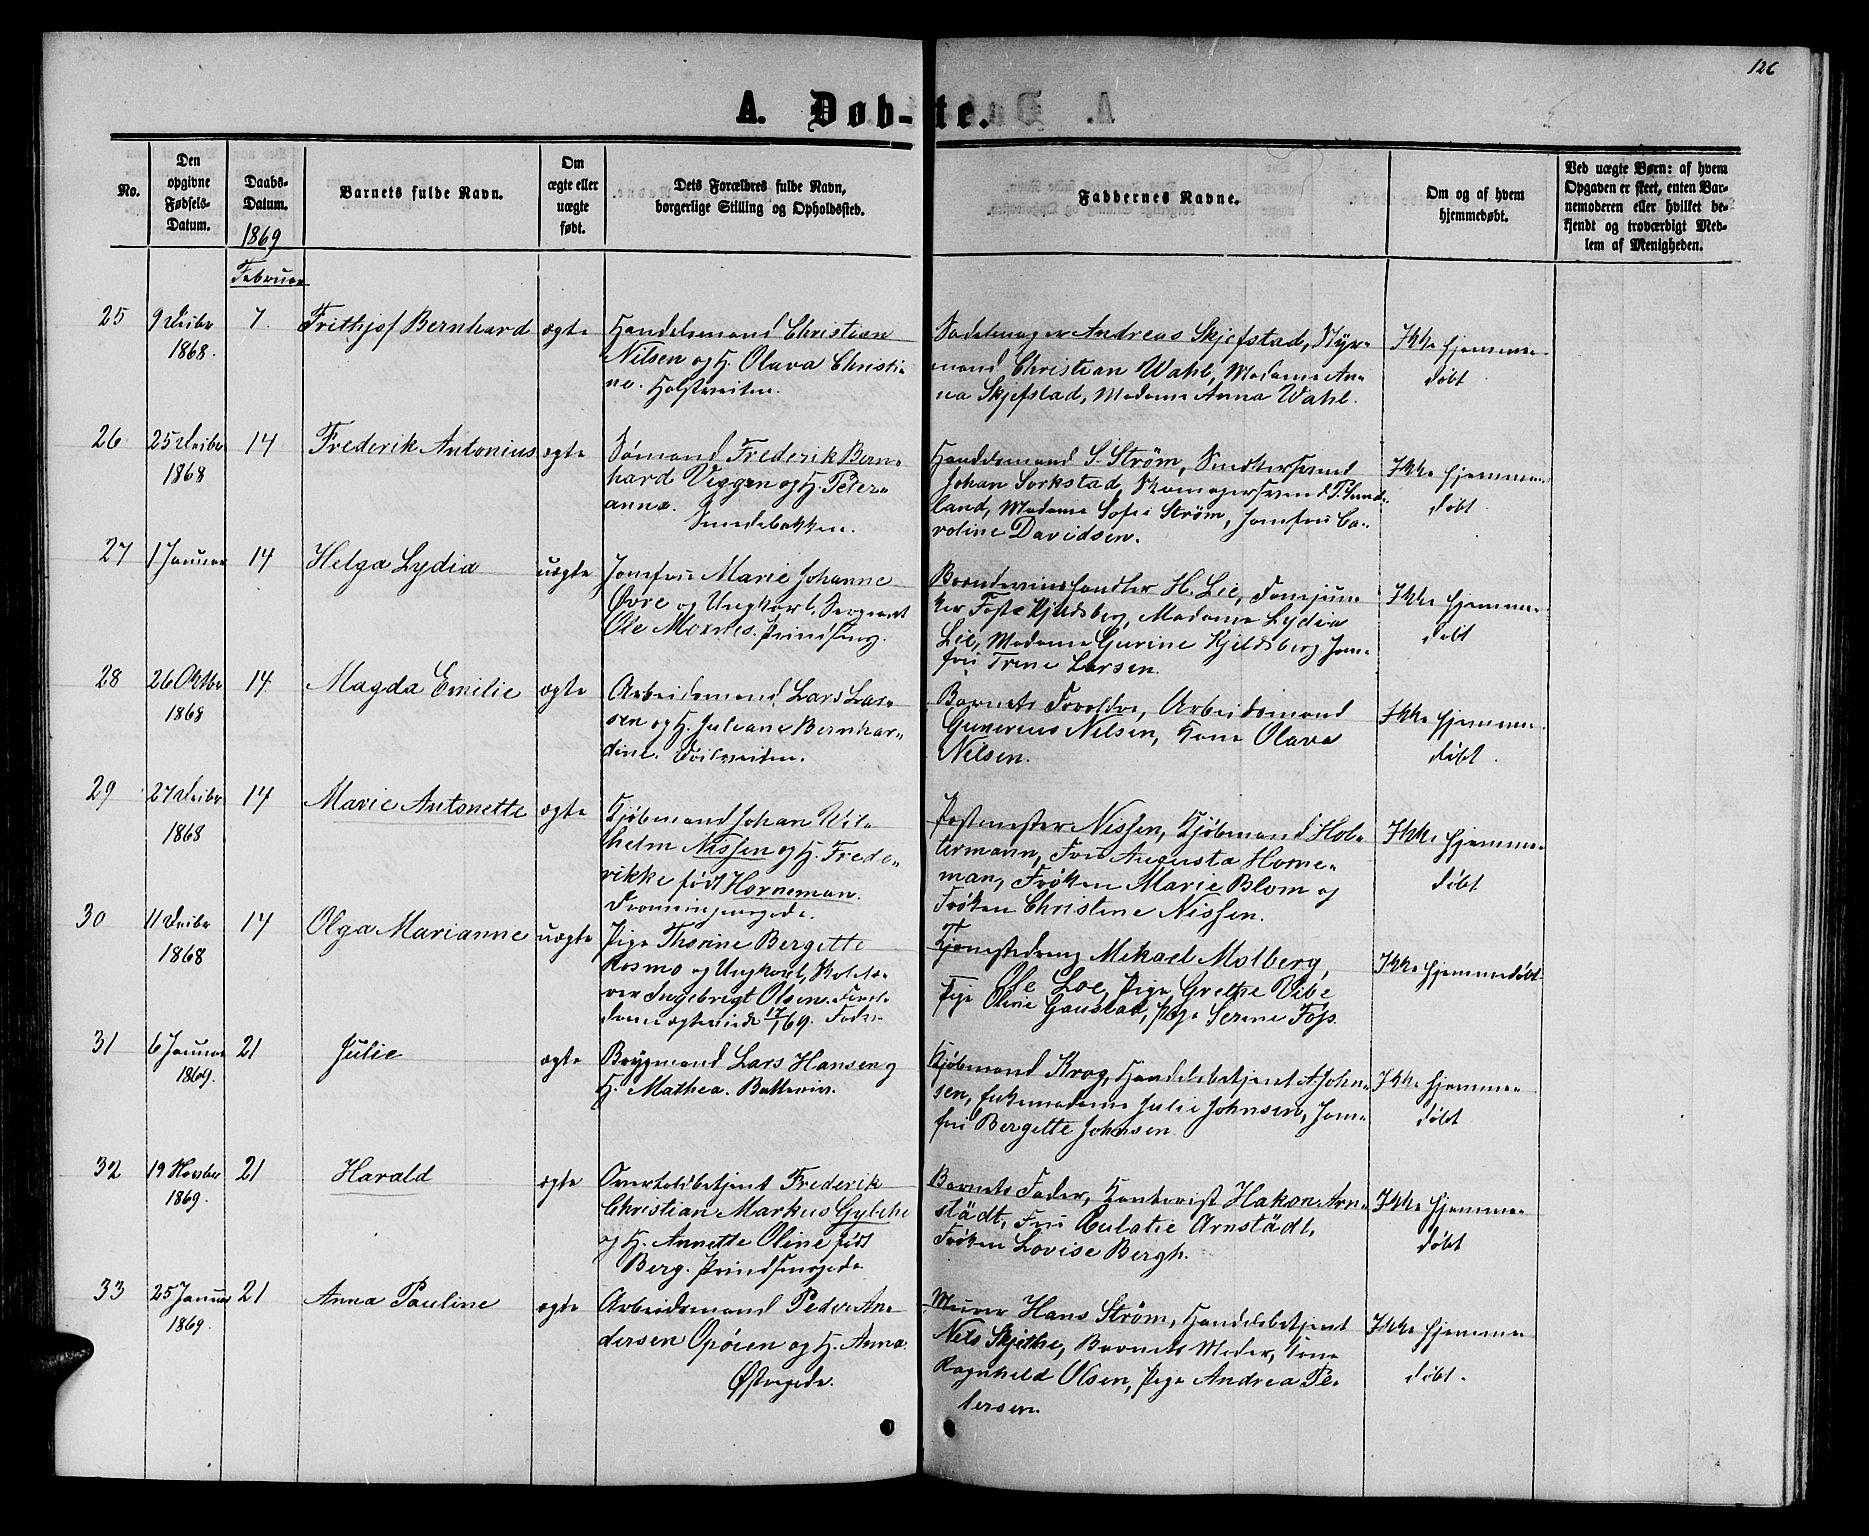 126
A. Døb-te.
No.
Den opgivne Fødsels-Datum.
Daabs-Datum.
1869
Barnets fulde Navn.
Om ægte eller uægte født.
Dets Forældres fulde Navn, borgerlige Stilling og Opholdssted.
Faddernes Navne.
Om og af hvem hjemmedøbt.
Ved uægte Børn: af hvem Opgaven er skeet, enten Barnemoderen eller hvilket bekjendt og troværdigt Medlem af Menigheden.
Februar
25
9 Decbr
1868.
7.
Frithjof Bernhard
ægte
Handelsmand Christian
Nilsen og H. Olava Christi-
ne.
Sadelmager Andreas Skjefstad, Styr-
mand Christian Wahl, Madame An-
na Skjefstad, Madame Anna Wahl.
Ikke hjemme-
døbt.
26
25 Decbr
1868
14
Frederik Antonius
ægte
Sømand Frederik Bern-
hard Viggen og H. Peter-
anna.
Smedebakken.
Handelsmand S. Strøm, Snedkersvend
Johan Sorkstad, Skomagersvend P. Sund-
land, Madame Sofie Strøm, Jomfru Ca-
roline Davidsen.
Ikke hjemme-
døbt.
27
1 Januar
14
Helga Lydia
uægte
Jomfru Marie Johanne
Øvre og Ungkarl, Sergeant
Ole Moxnes.
Brændeviinshandler H. Lie,
Kjeldsberg, Madame Lydia
Lie, Madame Gurine Kjeldsberg, Jom-
fru Trine Larsen.
Ikke hjemme-
døbt
28
26 Oktbr
1868
14
Magda Emilie
ægte
Arbeidsmand Lars Lar-
sen og H. Juliane Bernhar-
dine.
Barnets Forældre, Arbeidsmand
Gunerius Nilsen, Kone Olava
Nilsen.
Ikke hjemme-
døbt.
29
27 Decbr
1868
14
Marie Antonette
ægte
Kjøbmand Johan Wil-
helm Nissen og H. Frede-
rikke født Horneman.
Dronningensgade.
Postmester Nissen, Kjøbmand Hol-
termann, Fru Augusta Horne-
man, Frøken Marie Blom og
Frøken Christine Nissen.
Ikke hjemme-
døbt
30
11 Decbr
1868
14
Olga Marianne
uægte
Pige Thorine Bergette
Rosmo og Ungkarl,
Ingebrigt Olsen. Foræl-
drene ægteviede 17/1 69.
Tjenestedreng Mikael Molberg,
Ole Loe, Pige Grethe Vibe
Pige Oline Gaustad, Pige Serine Foss.
Ikke hjemmedøbt
31
6 Januar
1869.
21
Julie
ægte
Brygmand Lars Hansen og
H. Mathea.
Kjøbmand Krog, Handelsbetjent A John-
sen, Enkemadame Julie Johnsen, Jom-
fru Bergette Johnsen
Ikke hjemme-
døbt
32
19 Novbr
1869.
21
Harald
ægte
Overtoldbetjent Frederik
Christian Markus Gylche
og H. Annette Oline født
Berg. Prindsensgade
Barnets Fader, Kontorist Hakon Arn-
städt, Fru Eulalie Arnstädt,
Frøken Lovise Bergh.
Ikke hjemme-
døbt
33
25 Januar
1869.
21
Anna Pauline
ægte
Arbeidsmand Peder An-
dersen Opøien og H. Anna.
Østregade.
Murer Hans Strøm, Handelsbetjent
Nils Skjethe, Barnets Moder, Kone
Ragnhild Olsen, Pige Andrea Pe-
tersen.
Ikke hjemme-
døbt.